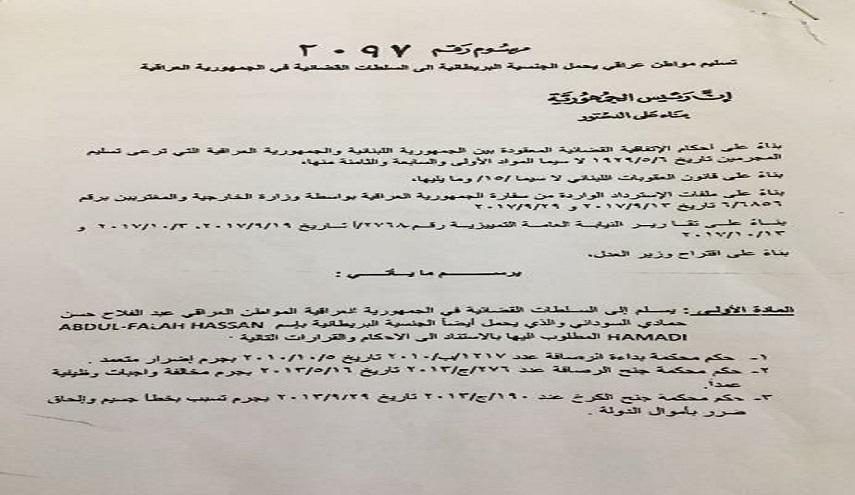 مرسوم رقم ٢٠٩٧
تسليم مواطن عراقي يحمل الجنسية البريطانية الى السلطات القضائية في الجمهورية العراقية
إنّ رئيس الجمهوريّة
بناء على الدستور
بناءً على أحكام الإتفاقية القضائية المعقودة بين الجمهورية اللبنانية والجمهورية العراقية التي ترعى تسليم
المجرمين تاريخ ١٩٢٩/٥/٦ لا سيما المواد الأولى والسابعة والثامنة منها،
بناءً على قانون العقوبات اللبناني لا سيما /١٥/ وما يليها،
بناءً على ملفات الإسترداد الواردة من سفارة الجمهورية العراقية بواسطة وزارة الخارجية والمغتربين برقم
٦/٦٨٥٦ تاريخ ٢٠١٧/٩/١٣ و ٢٠١٧/٩/٢٩
بناءً على تقارير النيابة العامة التمييزية رقم ٢٧٦٨/أ تاريخ ٢٠١٧/٩/١٩، ٢٠١٧/١٠/٣ و
٢٠١٧/١٠/١٣
بناءً على اقتراح وزير العدل،
يرسم ما يأتي :
المادة الأولى : يسلم إلى السلطات القضائية في الجمهورية العراقية المواطن العراقي عبد الفلاح حسن
حمادي السوداني والذي يحمل أيضاً الجنسية البريطانية بإسم ABDUL-FALAH HASSAN
HAMADI المطلوب اليها بالاستناد الى الاحكام والقرارات التالية :
١- حكم محكمة بداءة الرصافة عدد ١٢١٧/ب/٢٠١٠ تاريخ ٢٠١٠/١٠/٥ بجرم إضرار متعمد .
٢- حكم محكمة جنح الرصافة عدد ٢٧٦/ج/٢٠١٣ تاريخ ٢٠١٣/٥/١٦ بجرم مخالفة واجبات وظيفية
عمداً.
٣- حكم محكمة جنح الكرخ عدد ١٩٠/ج/٢٠١٣ تاريخ ٢٠١٣/٩/٢٩ بجرم تسبب بخطأ جسيم وإلحاق
ضرر بأموال الدولة .